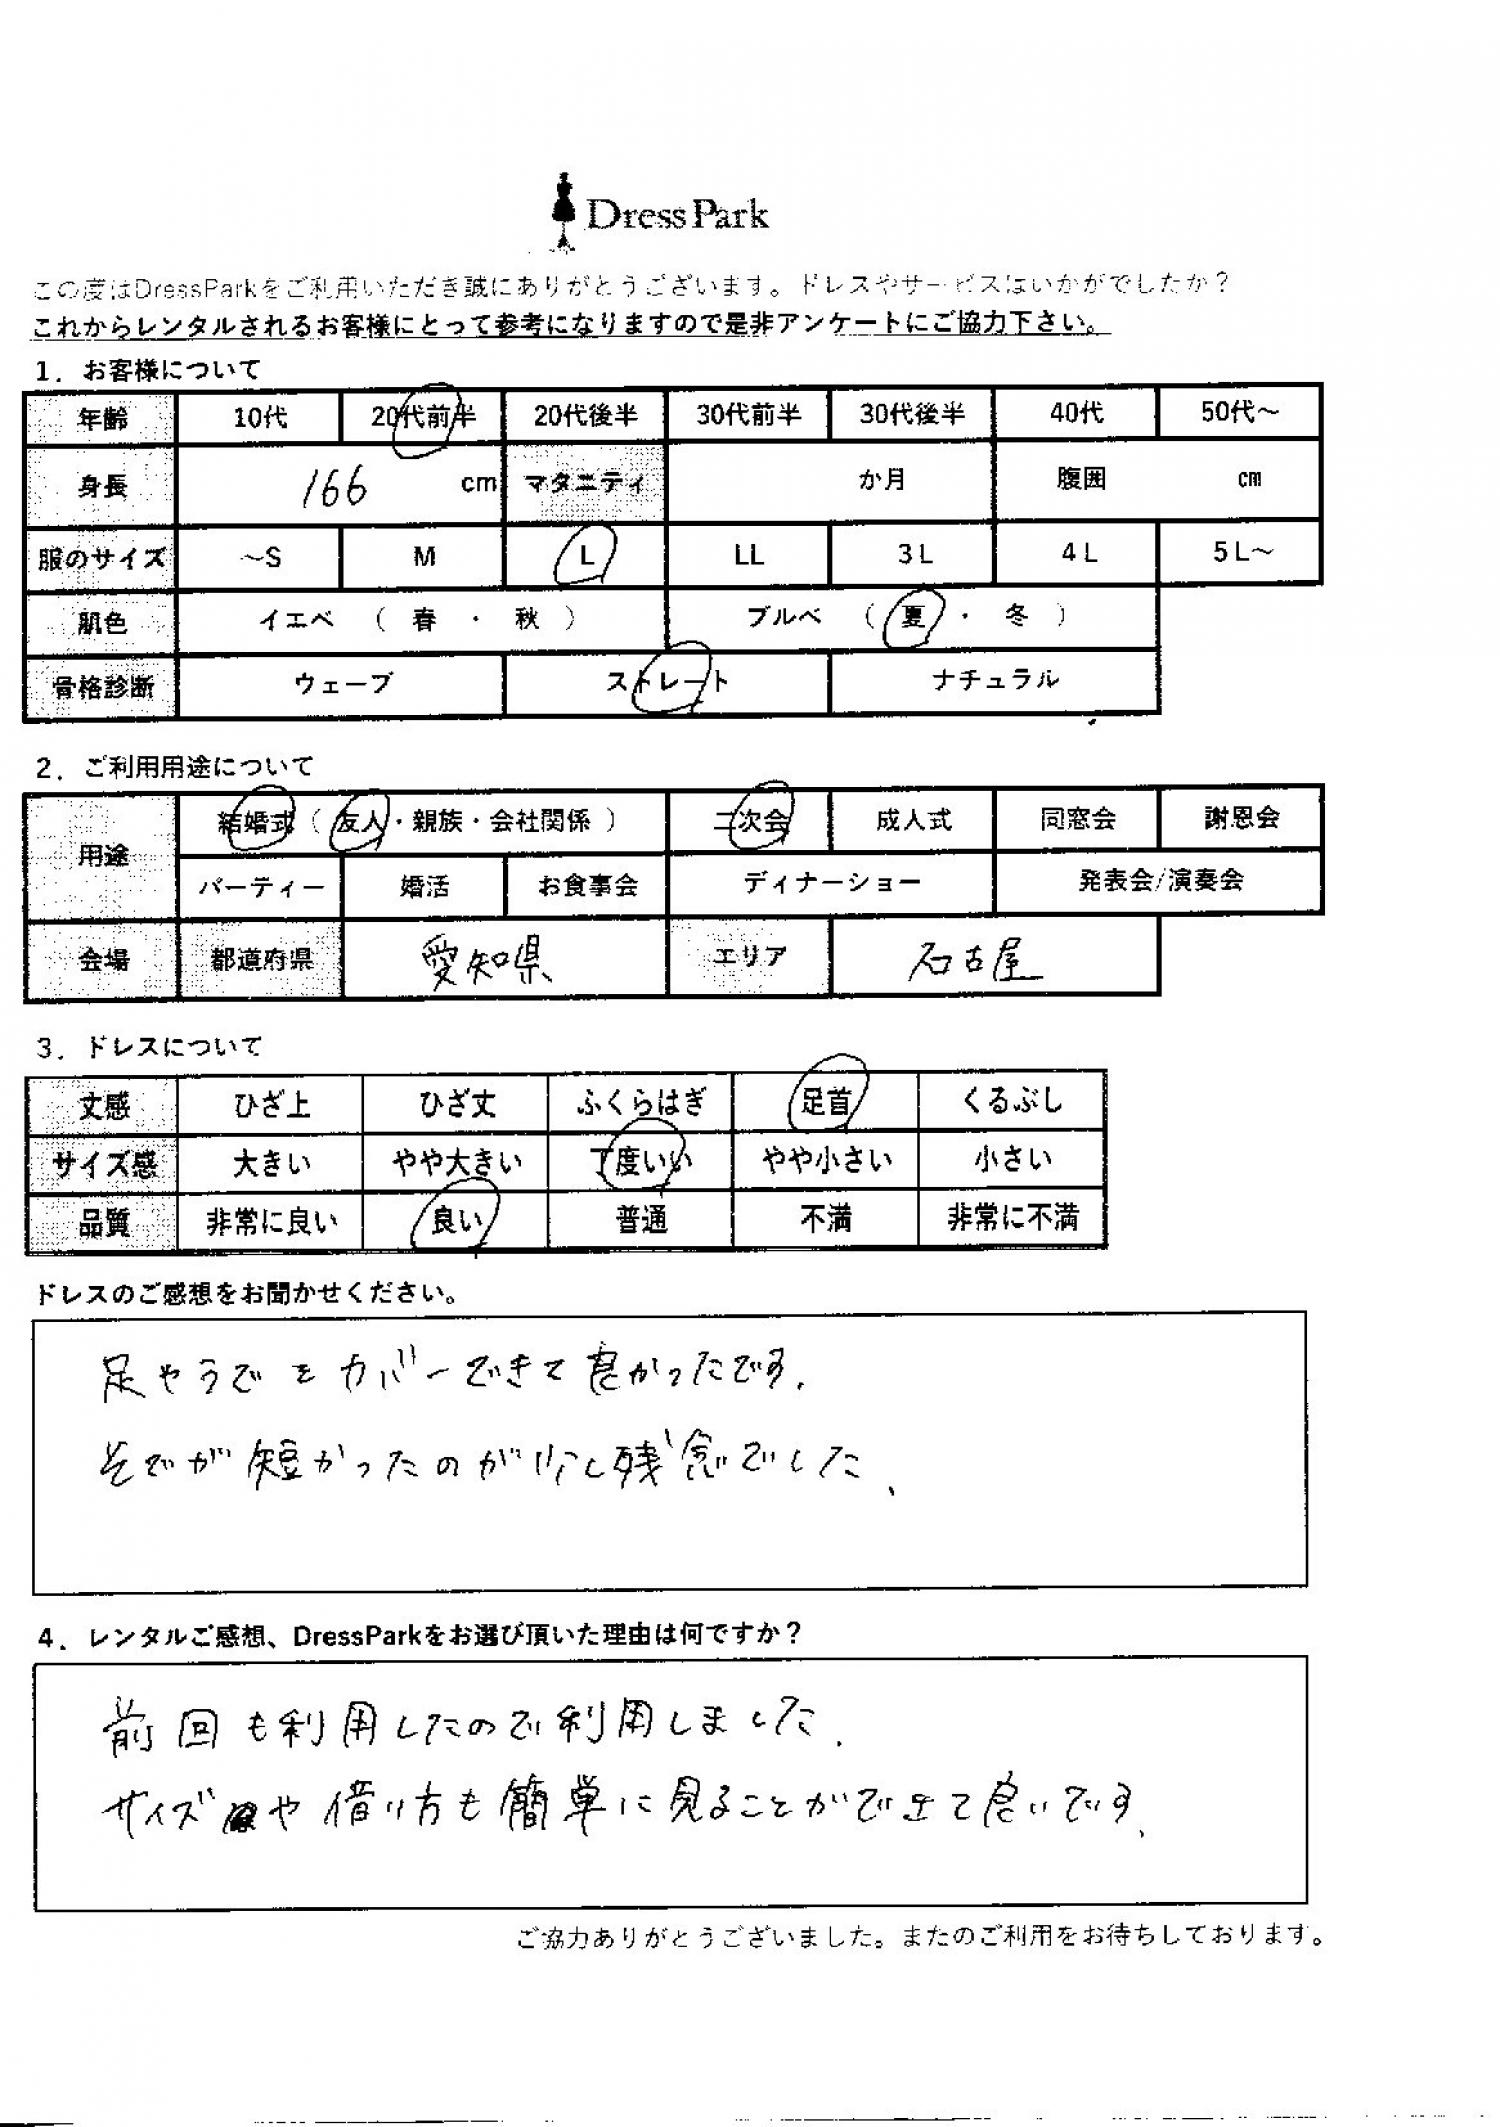 DressPark
この度はDressParkをご利用いただき誠にありがとうございます。ドレスやサービスはいかがでしたか？
これからレンタルされるお客様にとって参考になりますので是非アンケートにご協力下さい。
1．お客様について
年齢 10代 20代前半 20代後半 30代前半 30代後半 40代 50代～
身長 166 cm マタニティ か月 腹囲 cm
服のサイズ ～S M L LL 3L 4L 5L～
肌色 イエベ （ 春 ・ 秋 ） ブルベ （ 夏 ・ 冬 ）
骨格診断 ウェーブ ストレート ナチュラル
2．ご利用用途について
用途 結婚式（ 友人・親族・会社関係 ） 二次会 成人式 同窓会 謝恩会
パーティー 婚活 お食事会 ディナーショー 発表会/演奏会
会場 都道府県 愛知県 エリア 名古屋
3．ドレスについて
丈感 ひざ上 ひざ丈 ふくらはぎ 足首 くるぶし
サイズ感 大きい やや大きい 丁度いい やや小さい 小さい
品質 非常に良い 良い 普通 不満 非常に不満
ドレスのご感想をお聞かせください。
足やうでをカバーできて良かったです.
そでが短かったのが少し残念でした、
4．レンタルご感想、DressParkをお選び頂いた理由は何ですか？
前回も利用したので利用しました.
サイズや借り方も簡単に見ることができて良いです.
ご協力ありがとうございました。またのご利用をお待ちしております。